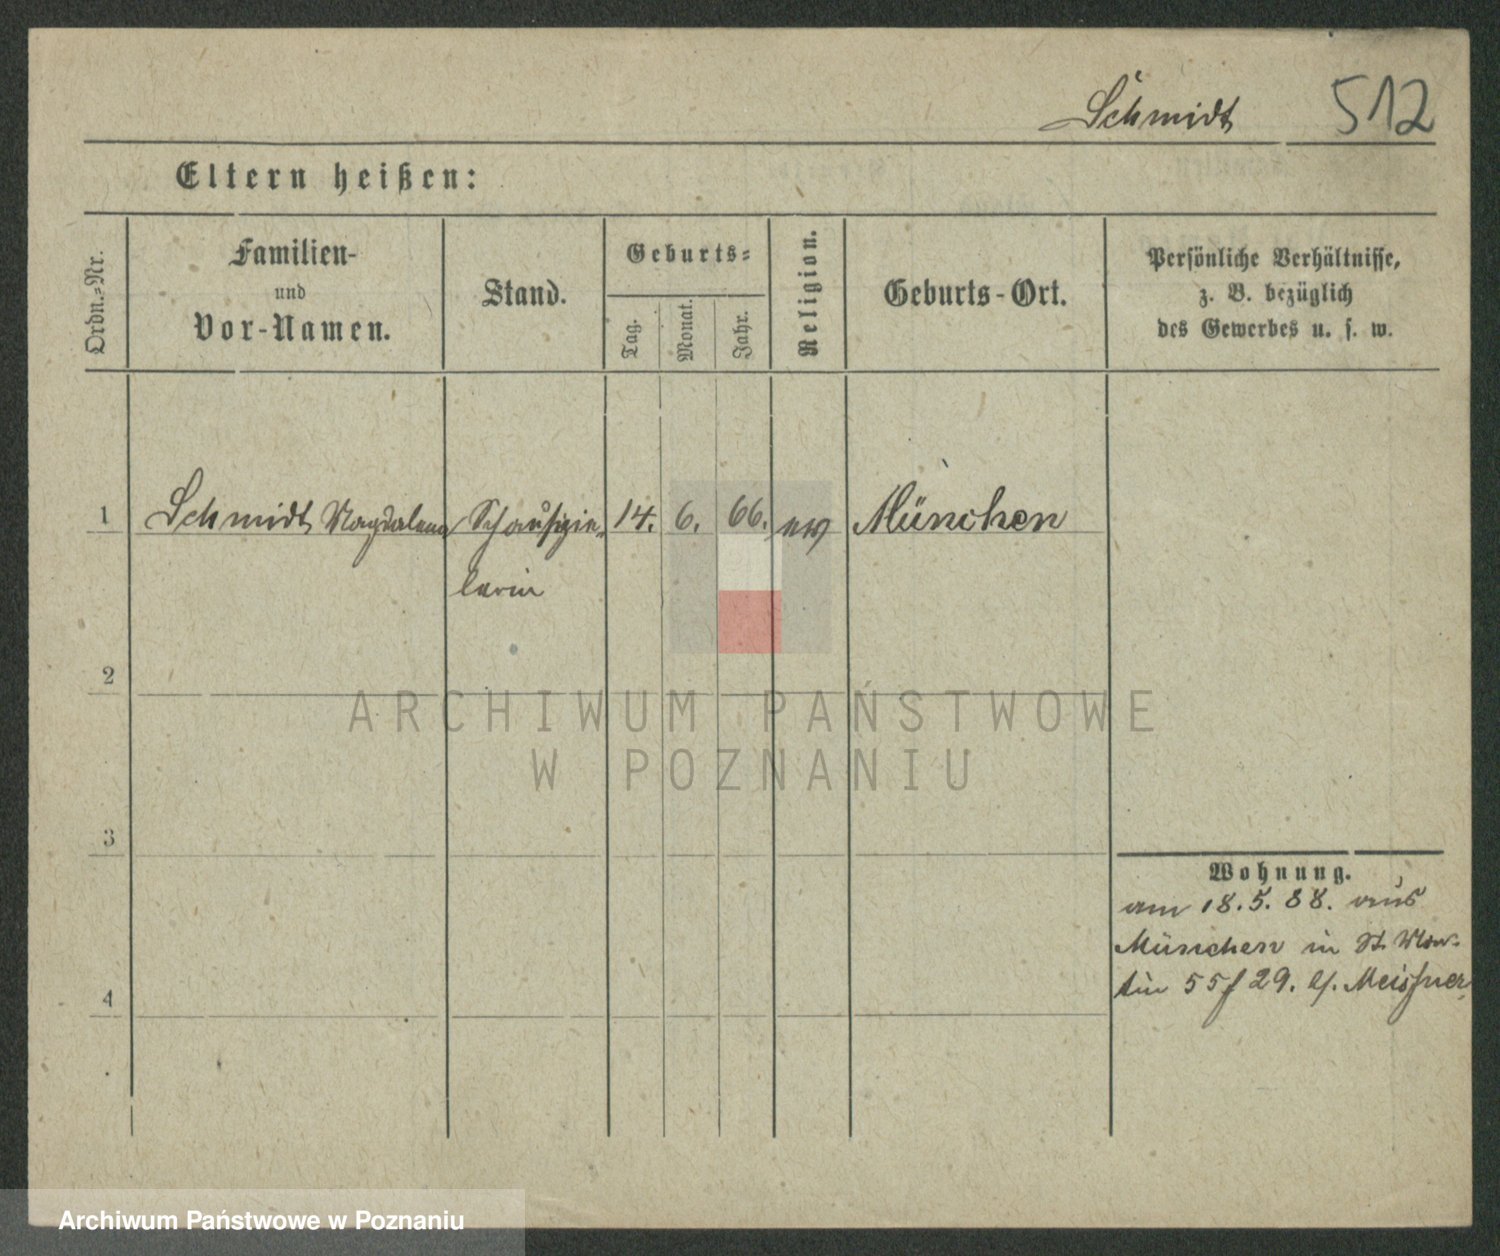 Schmidt 512
Eltern heißen:
Ordn.-Nr.
Familien-
und
Vor-Namen.
Stand.
Geburts-
Tag.
Monat.
Jahr.
Religion.
Geburts-Ort.
Persönliche Verhältnisse,
z. B. bezüglich
des Gewerbes u. s. w.
1 Schmidt Magdalena 14. 6. 66. ew München
lerin
2
ARCHIWUM PAŃSTWOWE
W POZNANIU
3
Wohnung.
am 18.5.88. aus
München in St. Mar-
tin 29. Meissner
4
Archiwum Państwowe w Poznaniu